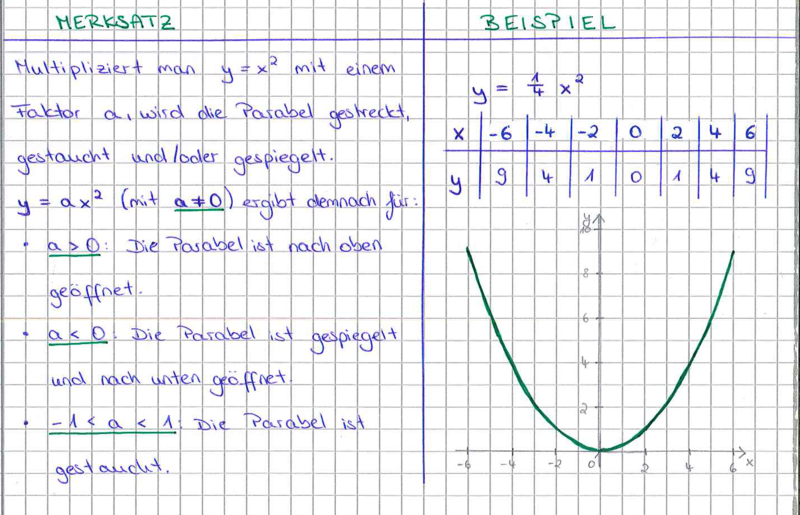 MERKSATZ
Multipliziert man y = x²  mit einem
Faktor a, wird die Parabel gestreckt,
gestaucht und/oder gespiegelt.
y = ax² (mit a ≠ 0) ergibt demnach für:
• a > 0: Die Parabel ist nach oben
geöffnet.
• a < 0: Die Parabel ist gespiegelt
und nach unten geöffnet.
• -1 < a < 1: Die Parabel ist
gestaucht.
BEISPIEL
y = 1/4 x²
x -6 -4 -2 0 2 4 6
y 9 4 1 0 1 4 9
y
10
8
6
4
2
-6 -4 -2 0 2 4 6 x